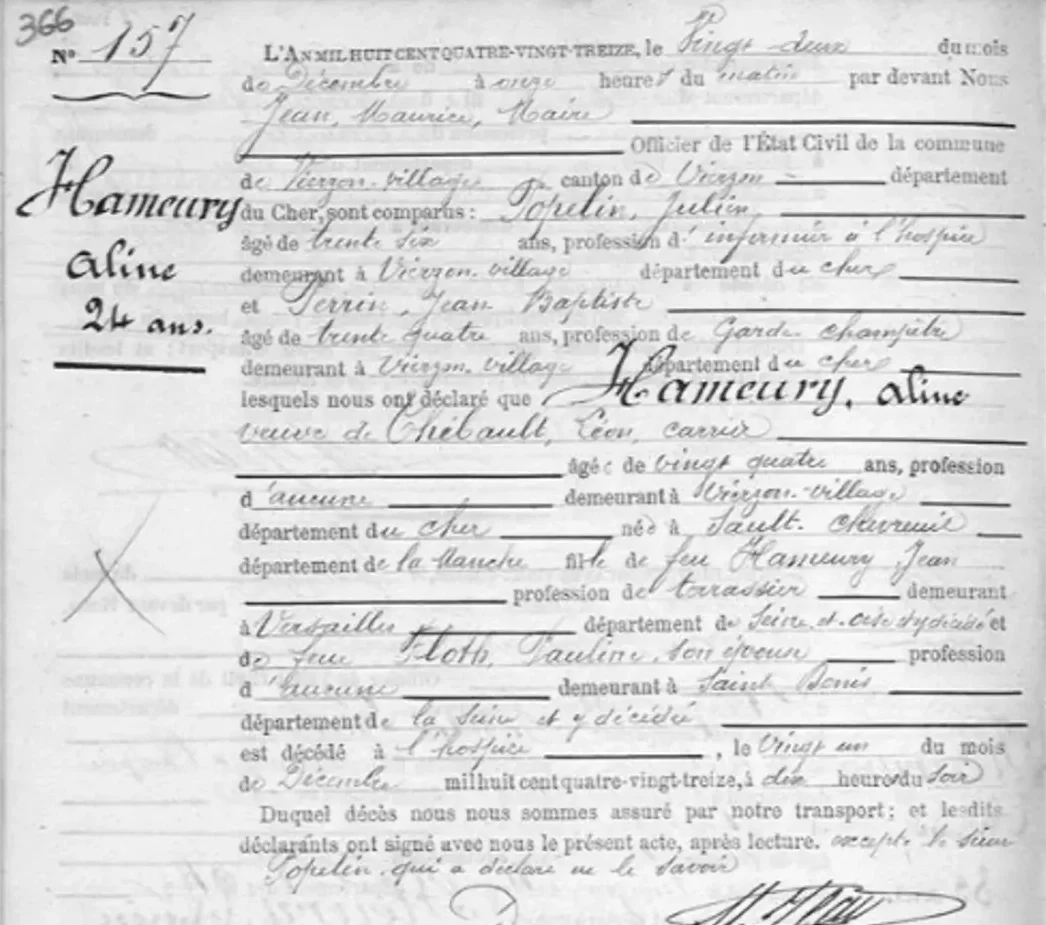 366
N° 157
L'AN MIL HUIT CENT QUATRE-VINGT-TREIZE, le Vingt deux du mois
de Décembre à onze heures du matin par devant Nous
Jean, Maurice, Maire
Officier de l'État Civil de la commune
de Vierzon-village canton de Vierzon département
du Cher, sont comparus : Popelin, Julien
âgé de trente six ans, profession d'infirmier à l'hospice
demeurant à Vierzon-village département du cher
et Perrin, Jean Baptiste
âgé de trente quatre ans, profession de Garde champêtre
demeurant à Vierzon-village département du cher
lesquels nous ont déclaré que Hameury, Aline
veuve de Thébault, Léon, carrier
âgée de vingt quatre ans, profession
d'aucune demeurant à Vierzon-village
département du cher née à Sault-Chevreuil
département de la Manche fille de feu Hameury Jean
profession de terrassier demeurant
à Versailles département de Seine-et-oise y décédé et
de feue Floth, Pauline, son épouse profession
d'aucune demeurant à Saint Denis
département de la Seine et y décédée
est décédé à l'hospice, le Vingt un du mois
de Décembre mil huit cent quatre-vingt-treize, à dix heures du soir
Duquel décès nous nous sommes assuré par notre transport ; et lesdits
déclarants ont signé avec nous le présent acte, après lecture. excepté le sieur
Popelin qui a déclaré ne le savoir
Hameury
Aline
24 ans.